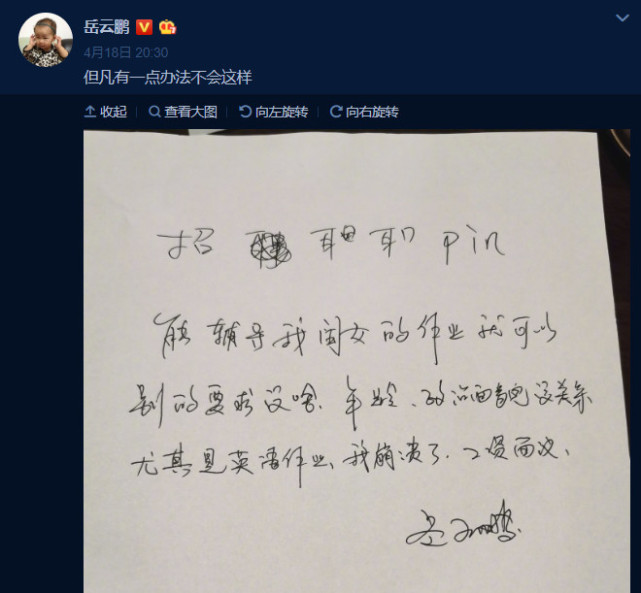 岳云鹏
4月18日 20:30
但凡有一点办法不会这样
收起 查看大图 向左旋转 向右旋转
招 pin
能辅导我闺女的作业就可以
别的要求没啥、年龄、政治面貌没关系
尤其是英语作业、我崩溃了、工资面议、
岳云鹏